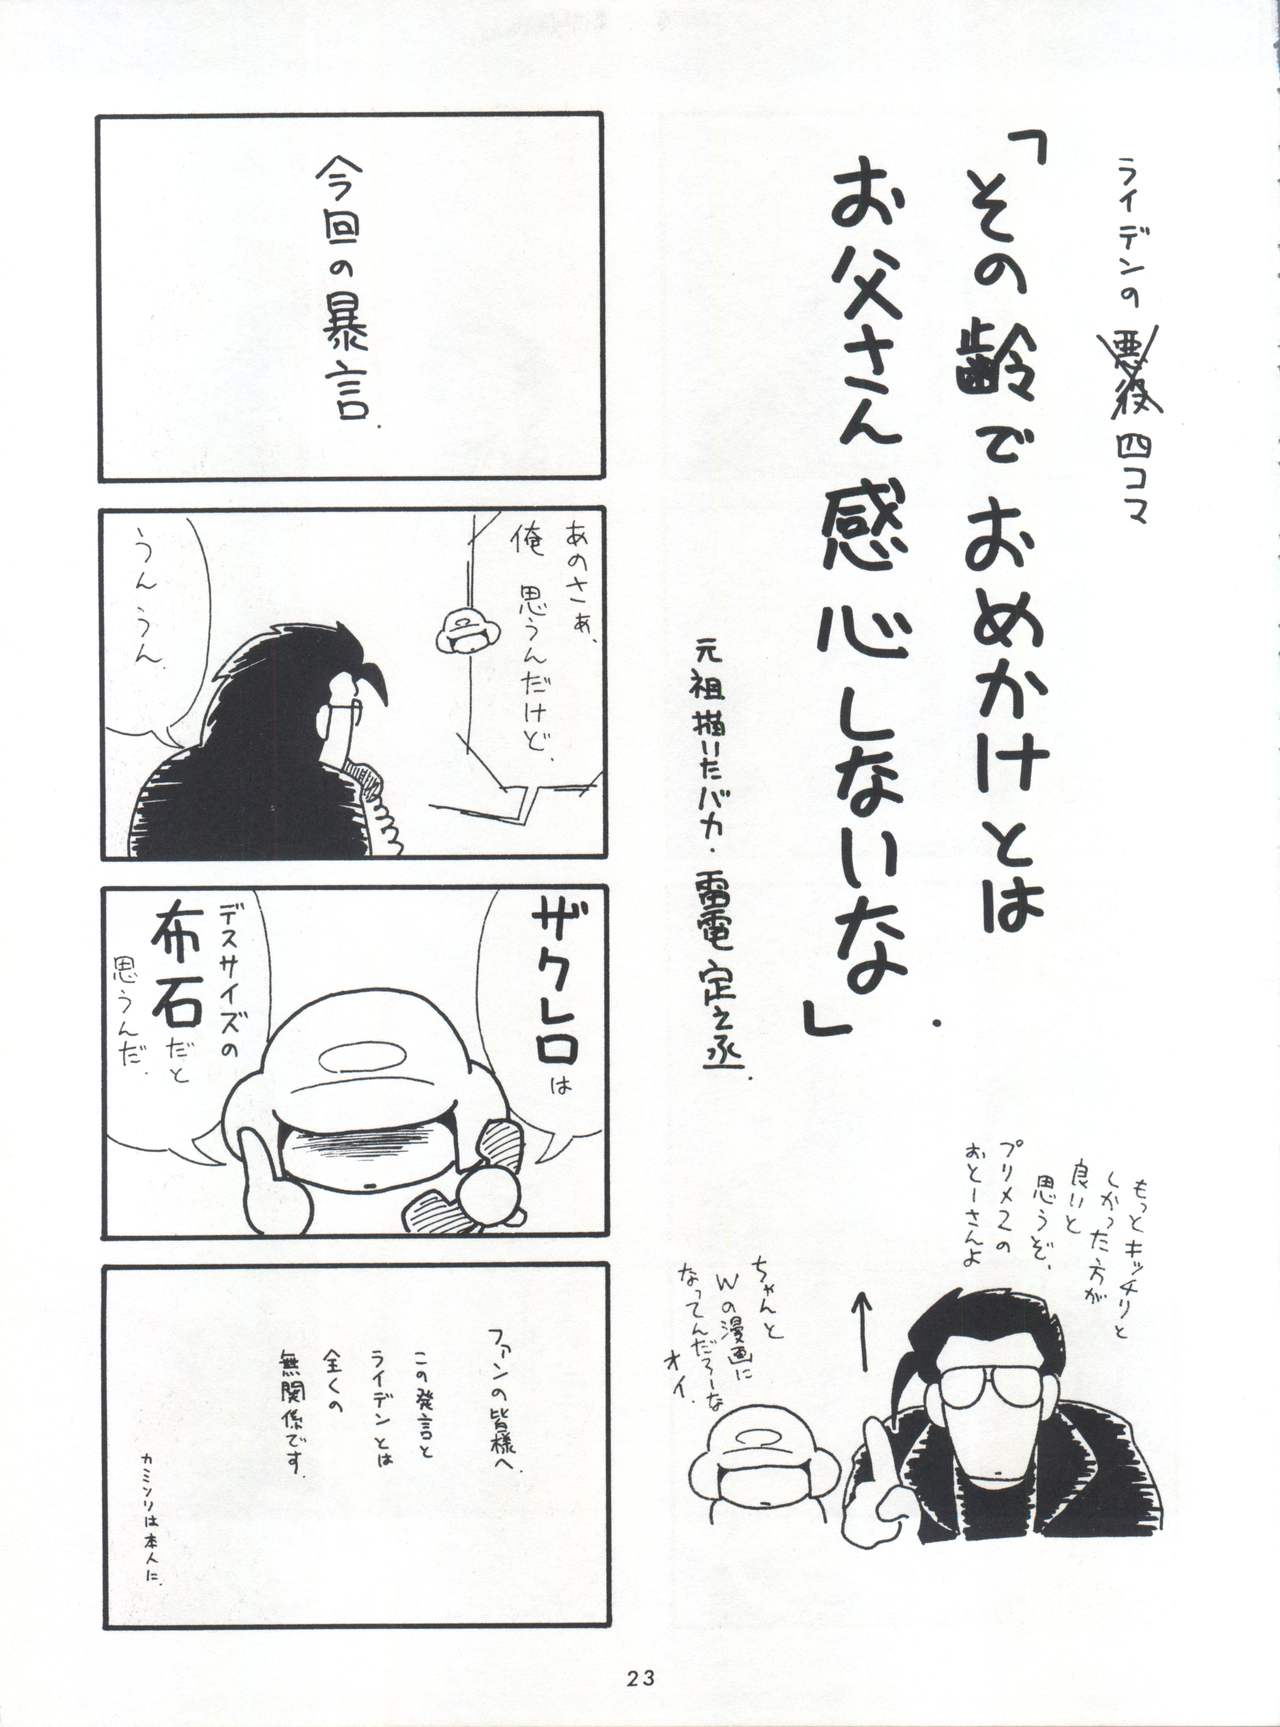 ライデンの悪役四コマ
「その齢でおめかけとは
お父さん感心しないな」
元祖描いたバカ・雷電定之丞.
もっとキッチリと
しかった方が
良いと
思うぞ、
プリメ2の
おとーさんよ
ちゃんと
Wの漫画に
なってんだろーな
オイ.
今回の暴言.
あのさぁ、
俺 思うんだけど、
うんうん.
ザクレロは
デスサイズの
布石だと
思うんだ.
ファンの皆様へ.
この発言と
ライデンとは
全くの
無関係です.
カミソリは本人に.
23